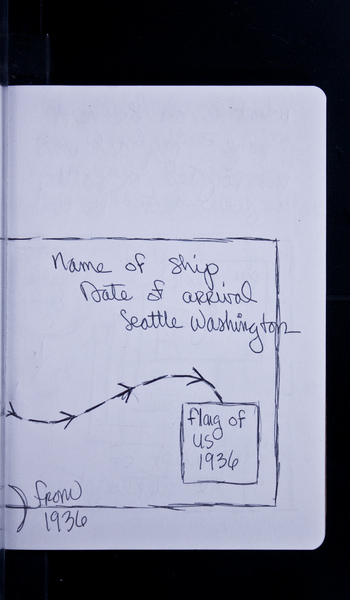 Name of ship
Date of arrival
Seattle Washington
flag of
US
1936
from
1936